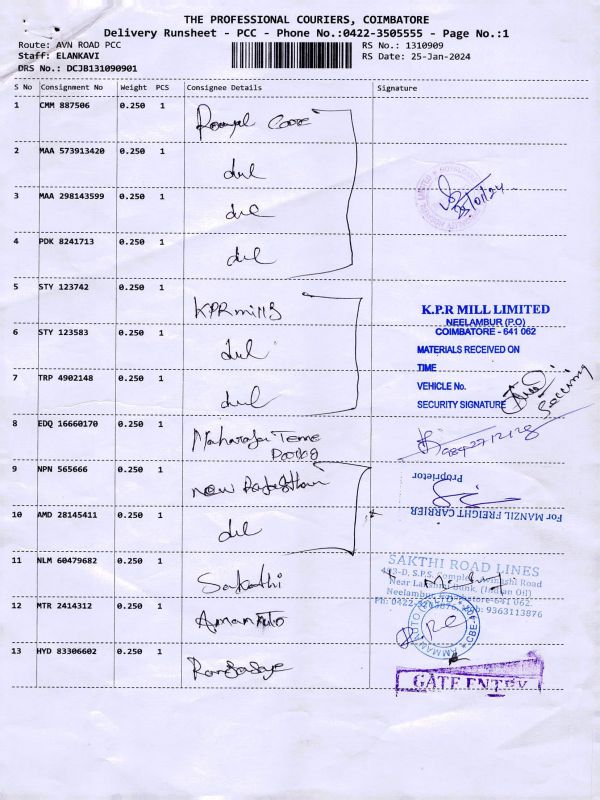 THE PROFESSIONAL COURIERS, COIMBATORE
Delivery Runsheet - PCC - Phone No.:0422-3505555 - Page No.:1
Route: AVN ROAD PCC RS No.: 1310909
Staff: ELANKAVI RS Date: 25-Jan-2024
DRS No.: DCJB131090901
S No Consignment No Weight PCS Consignee Details Signature
1 CMM 887506 0.250 1 Royal Care
2 MAA 573913420 0.250 1
3 MAA 298143599 0.250 1
4 PDK 8241713 0.250 1
5 STY 123742 0.250 1 KPR mills
K.P.R MILL LIMITED
NEELAMBUR (P.O)
COIMBATORE - 641 062
6 STY 123583 0.250 1
MATERIALS RECEIVED ON
TIME
7 TRP 4902148 0.250 1
VEHICLE No.
SECURITY SIGNATURE
Security
8 EDQ 16660170 0.250 1 Maharaja Teme
9 NPN 565666 0.250 1 New Rajasthan
Proprietor
10 AMD 28145411 0.250 1
For MANZIL FREIGHT CARRIER
11 NLM 60479682 0.250 1 Sakthi
SAKTHI ROAD LINES
493-D, S.P.S. Complex, Avinashi Road
Near Lakshmi Bank. (Indian Oil)
Neelambur, Coimbatore-641 062.
12 MTR 2414312 0.250 1 Amman Auto
13 HYD 83306602 0.250 1
GATE ENTRY